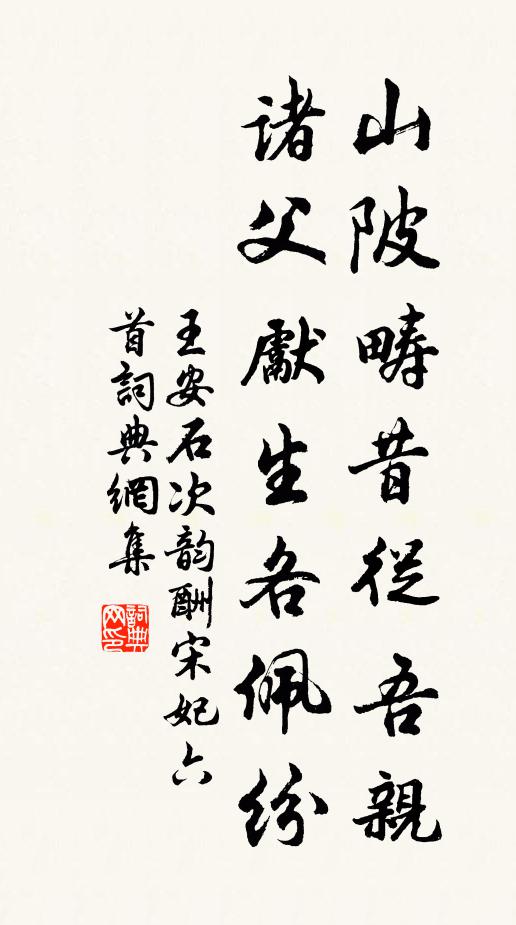 山陂疇昔從吾親
諸父獻生各佩紛
王安石次韵酬宋妃六
首詞典網集
詞典网印